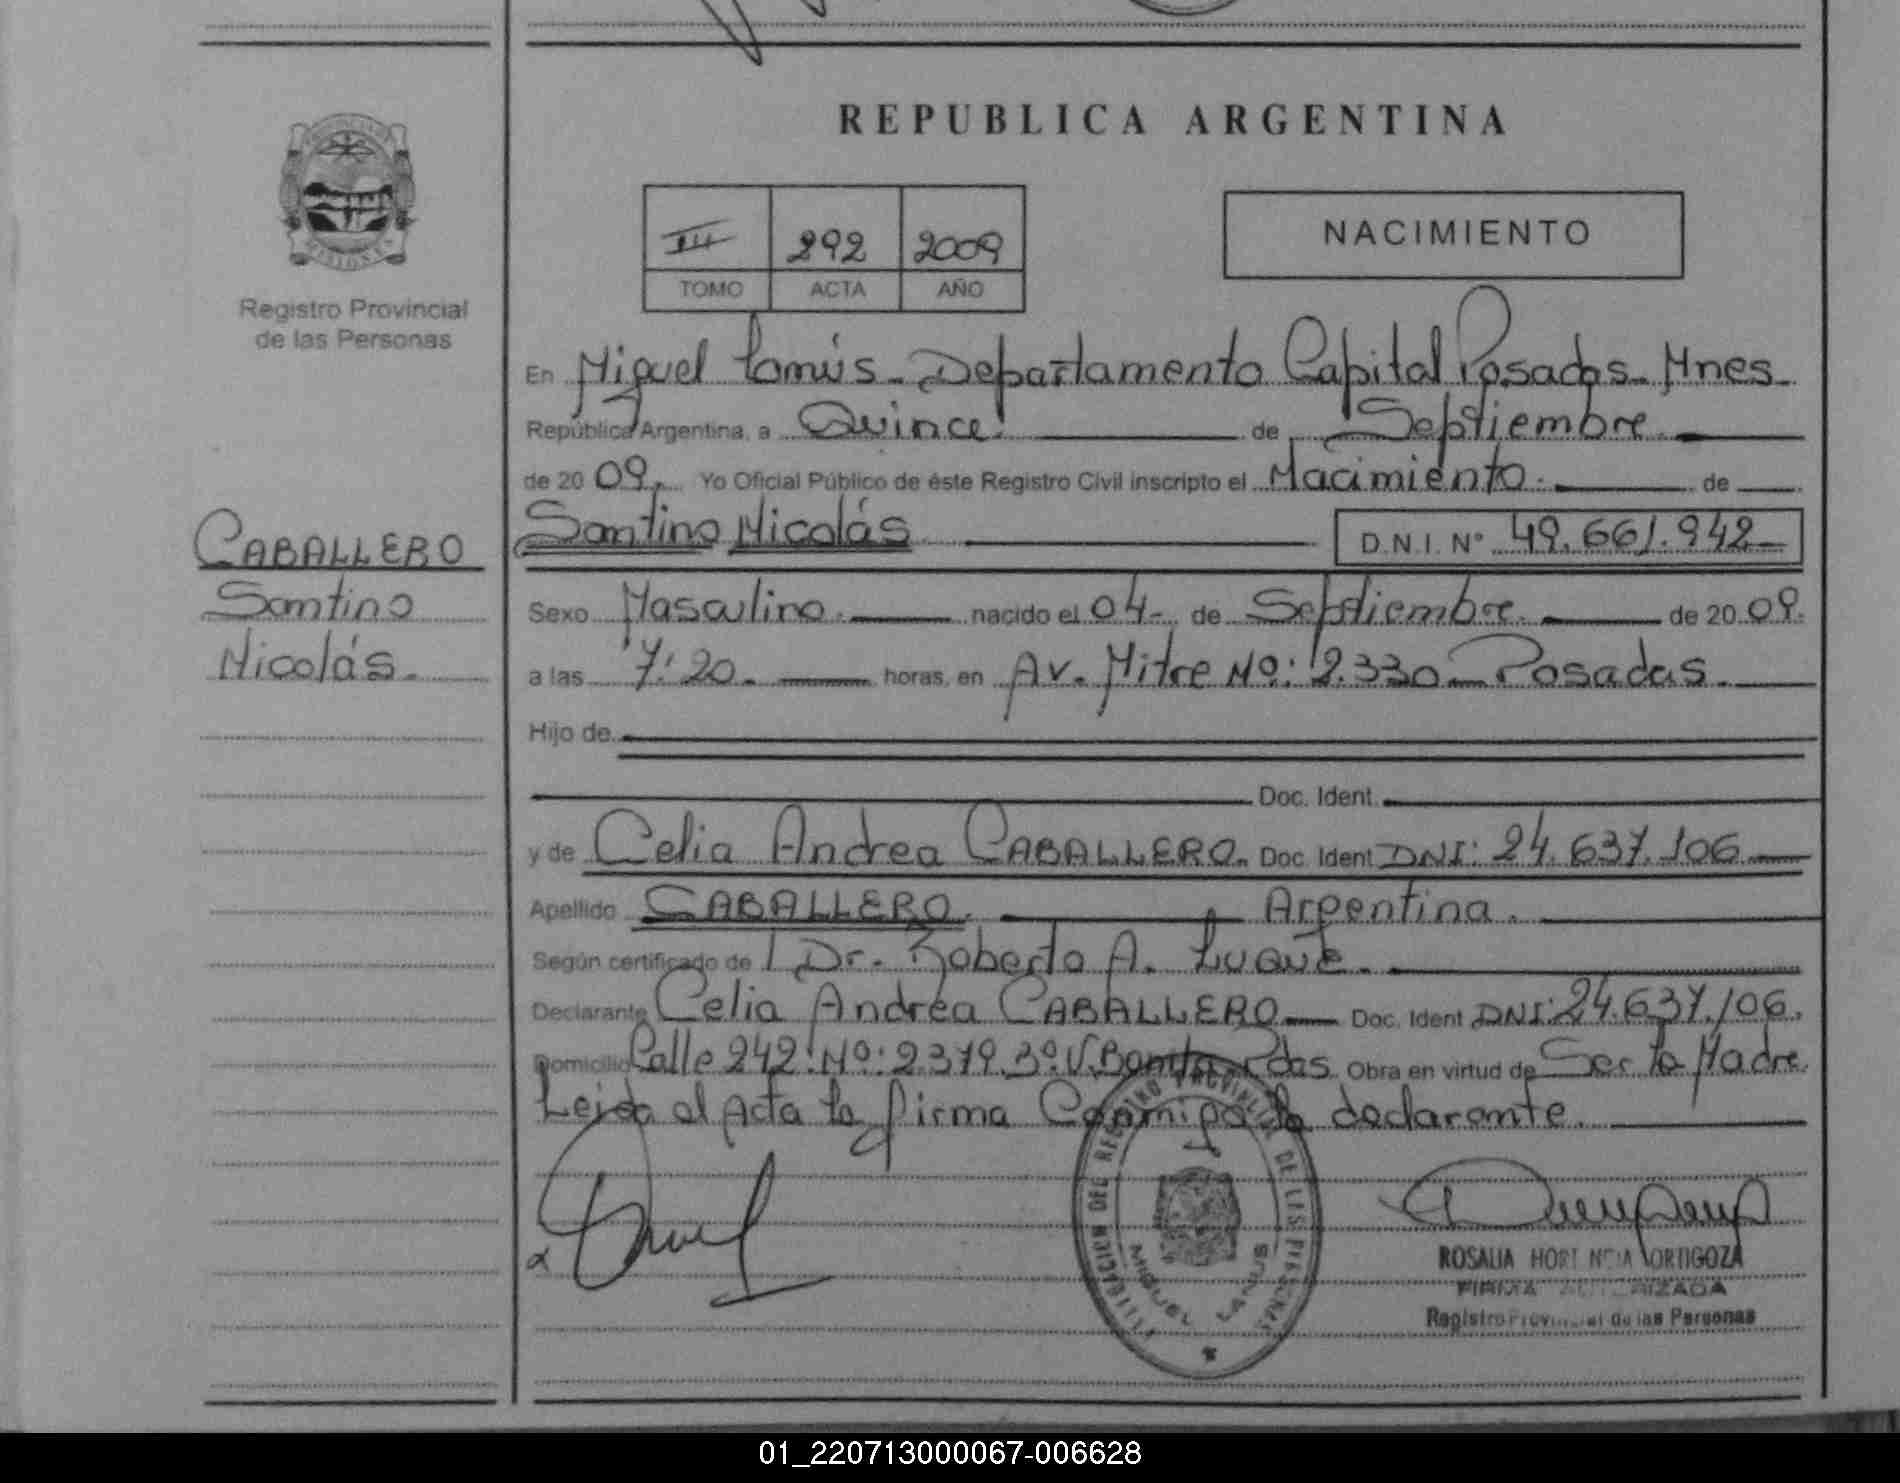 REPUBLICA ARGENTINA
Registro Provincial
de las Personas
III 292 2009
TOMO ACTA AÑO
NACIMIENTO
En Miguel Lanús - Departamento Capital Posadas - Mnes -
República Argentina, a Quince. de Septiembre.
de 2009. Yo Oficial Público de éste Registro Civil inscripto el Nacimiento. de
Santino Nicolás D.N.I. Nº 49.661.942
CABALLERO
Santino
Nicolás.
Sexo Masculino. nacido el 04- de Septiembre. de 2009.
a las 7:20. horas, en Av. Mitre Nº: 2.330 - Posadas.
Hijo de
Doc. Ident.
y de Celia Andrea CABALLERO. Doc. Ident DNI: 24.637.106
Apellido CABALLERO. Argentina.
Según certificado de Dr. Roberto A. Luque.
Declarante Celia Andrea CABALLERO Doc. Ident DNI: 24.637.106.
Domicilio Calle 242. Nº: 2.379. 3º. V. Bonita Pdas Obra en virtud de Ser la Madre.
Leida el Acta la firma Conmigo la declarante.
MIGUEL LANUS
ROSALIA HORTENCIA ORTIGOZA
FIRMA AUTORIZADA
Registro Provincial de las Personas
01_220713000067-006628